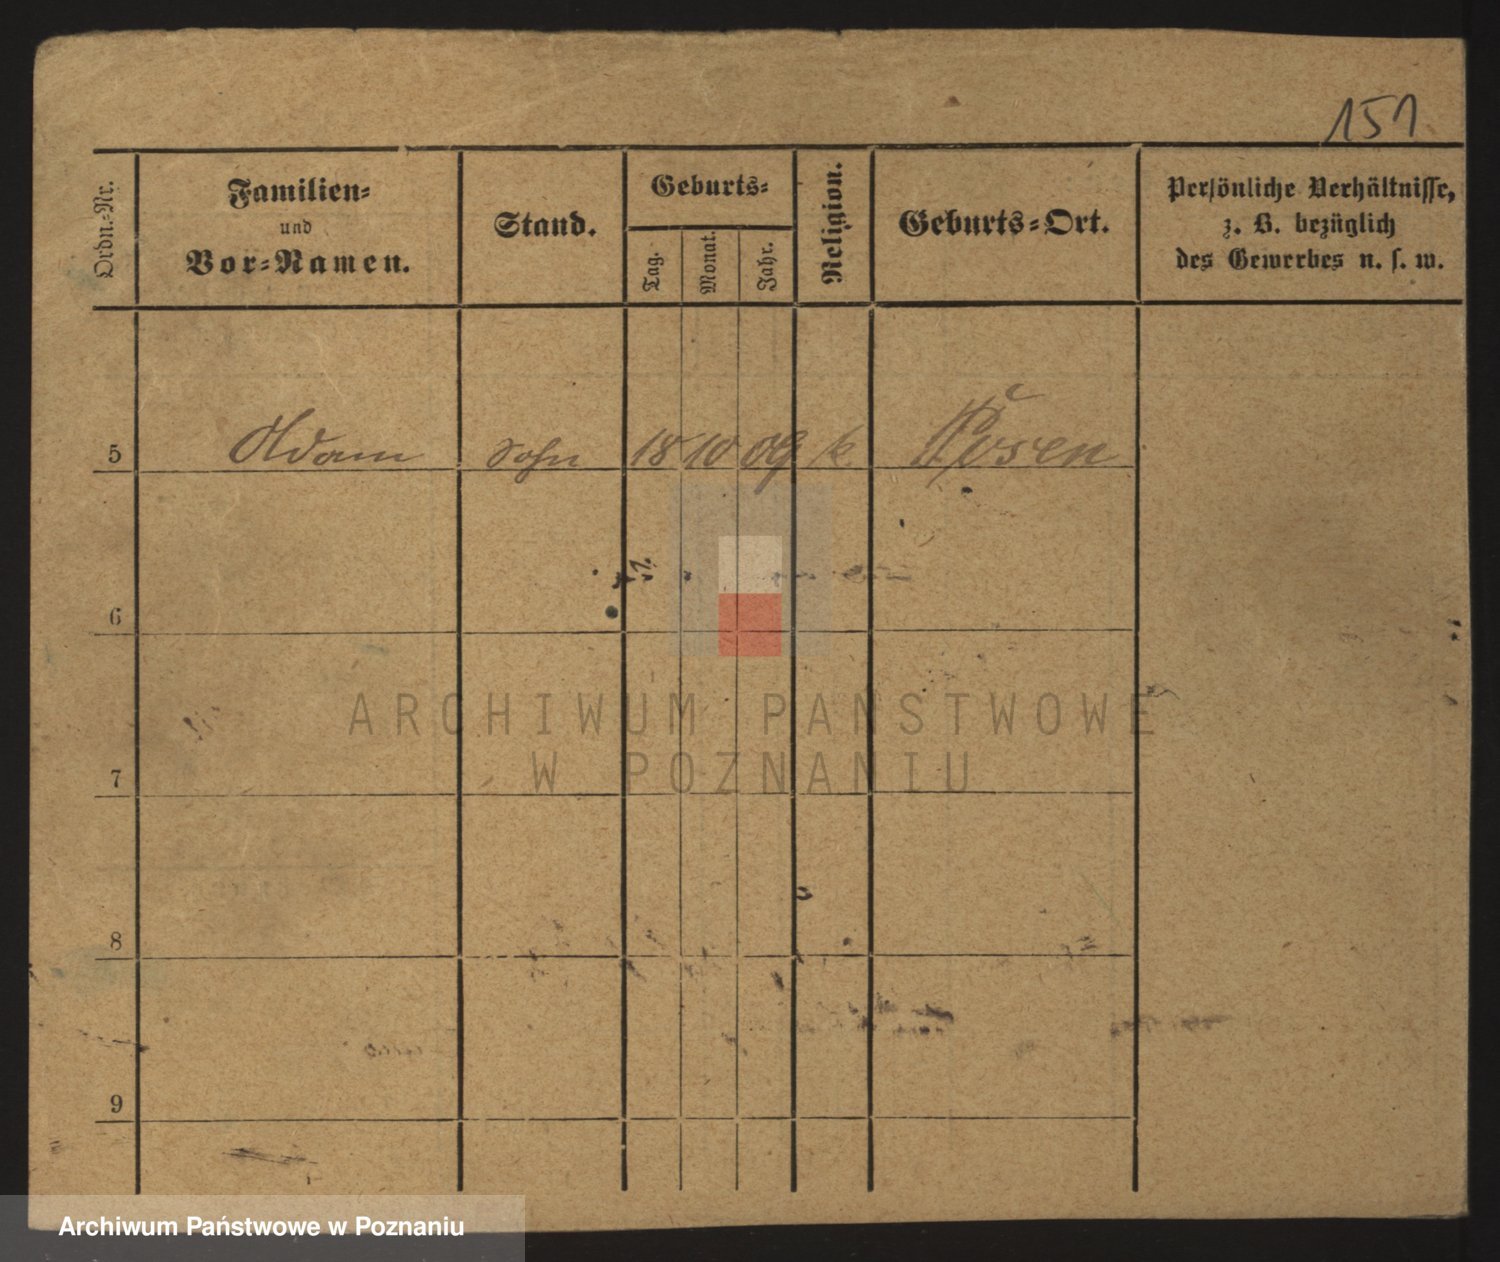 151
Ordn.-Nr.
Familien-
und
Vor-Namen.
Stand.
Geburts-
Tag.
Monat.
Jahr.
Religion.
Geburts-Ort.
Persönliche Verhältnisse,
z. B. bezüglich
des Gewerbes u. s. w.
5 Adam Sohn 18 10 09 k Posen
6
ARCHIWUM PAŃSTWOWE
W POZNANIU
7
8
9
Archiwum Państwowe w Poznaniu